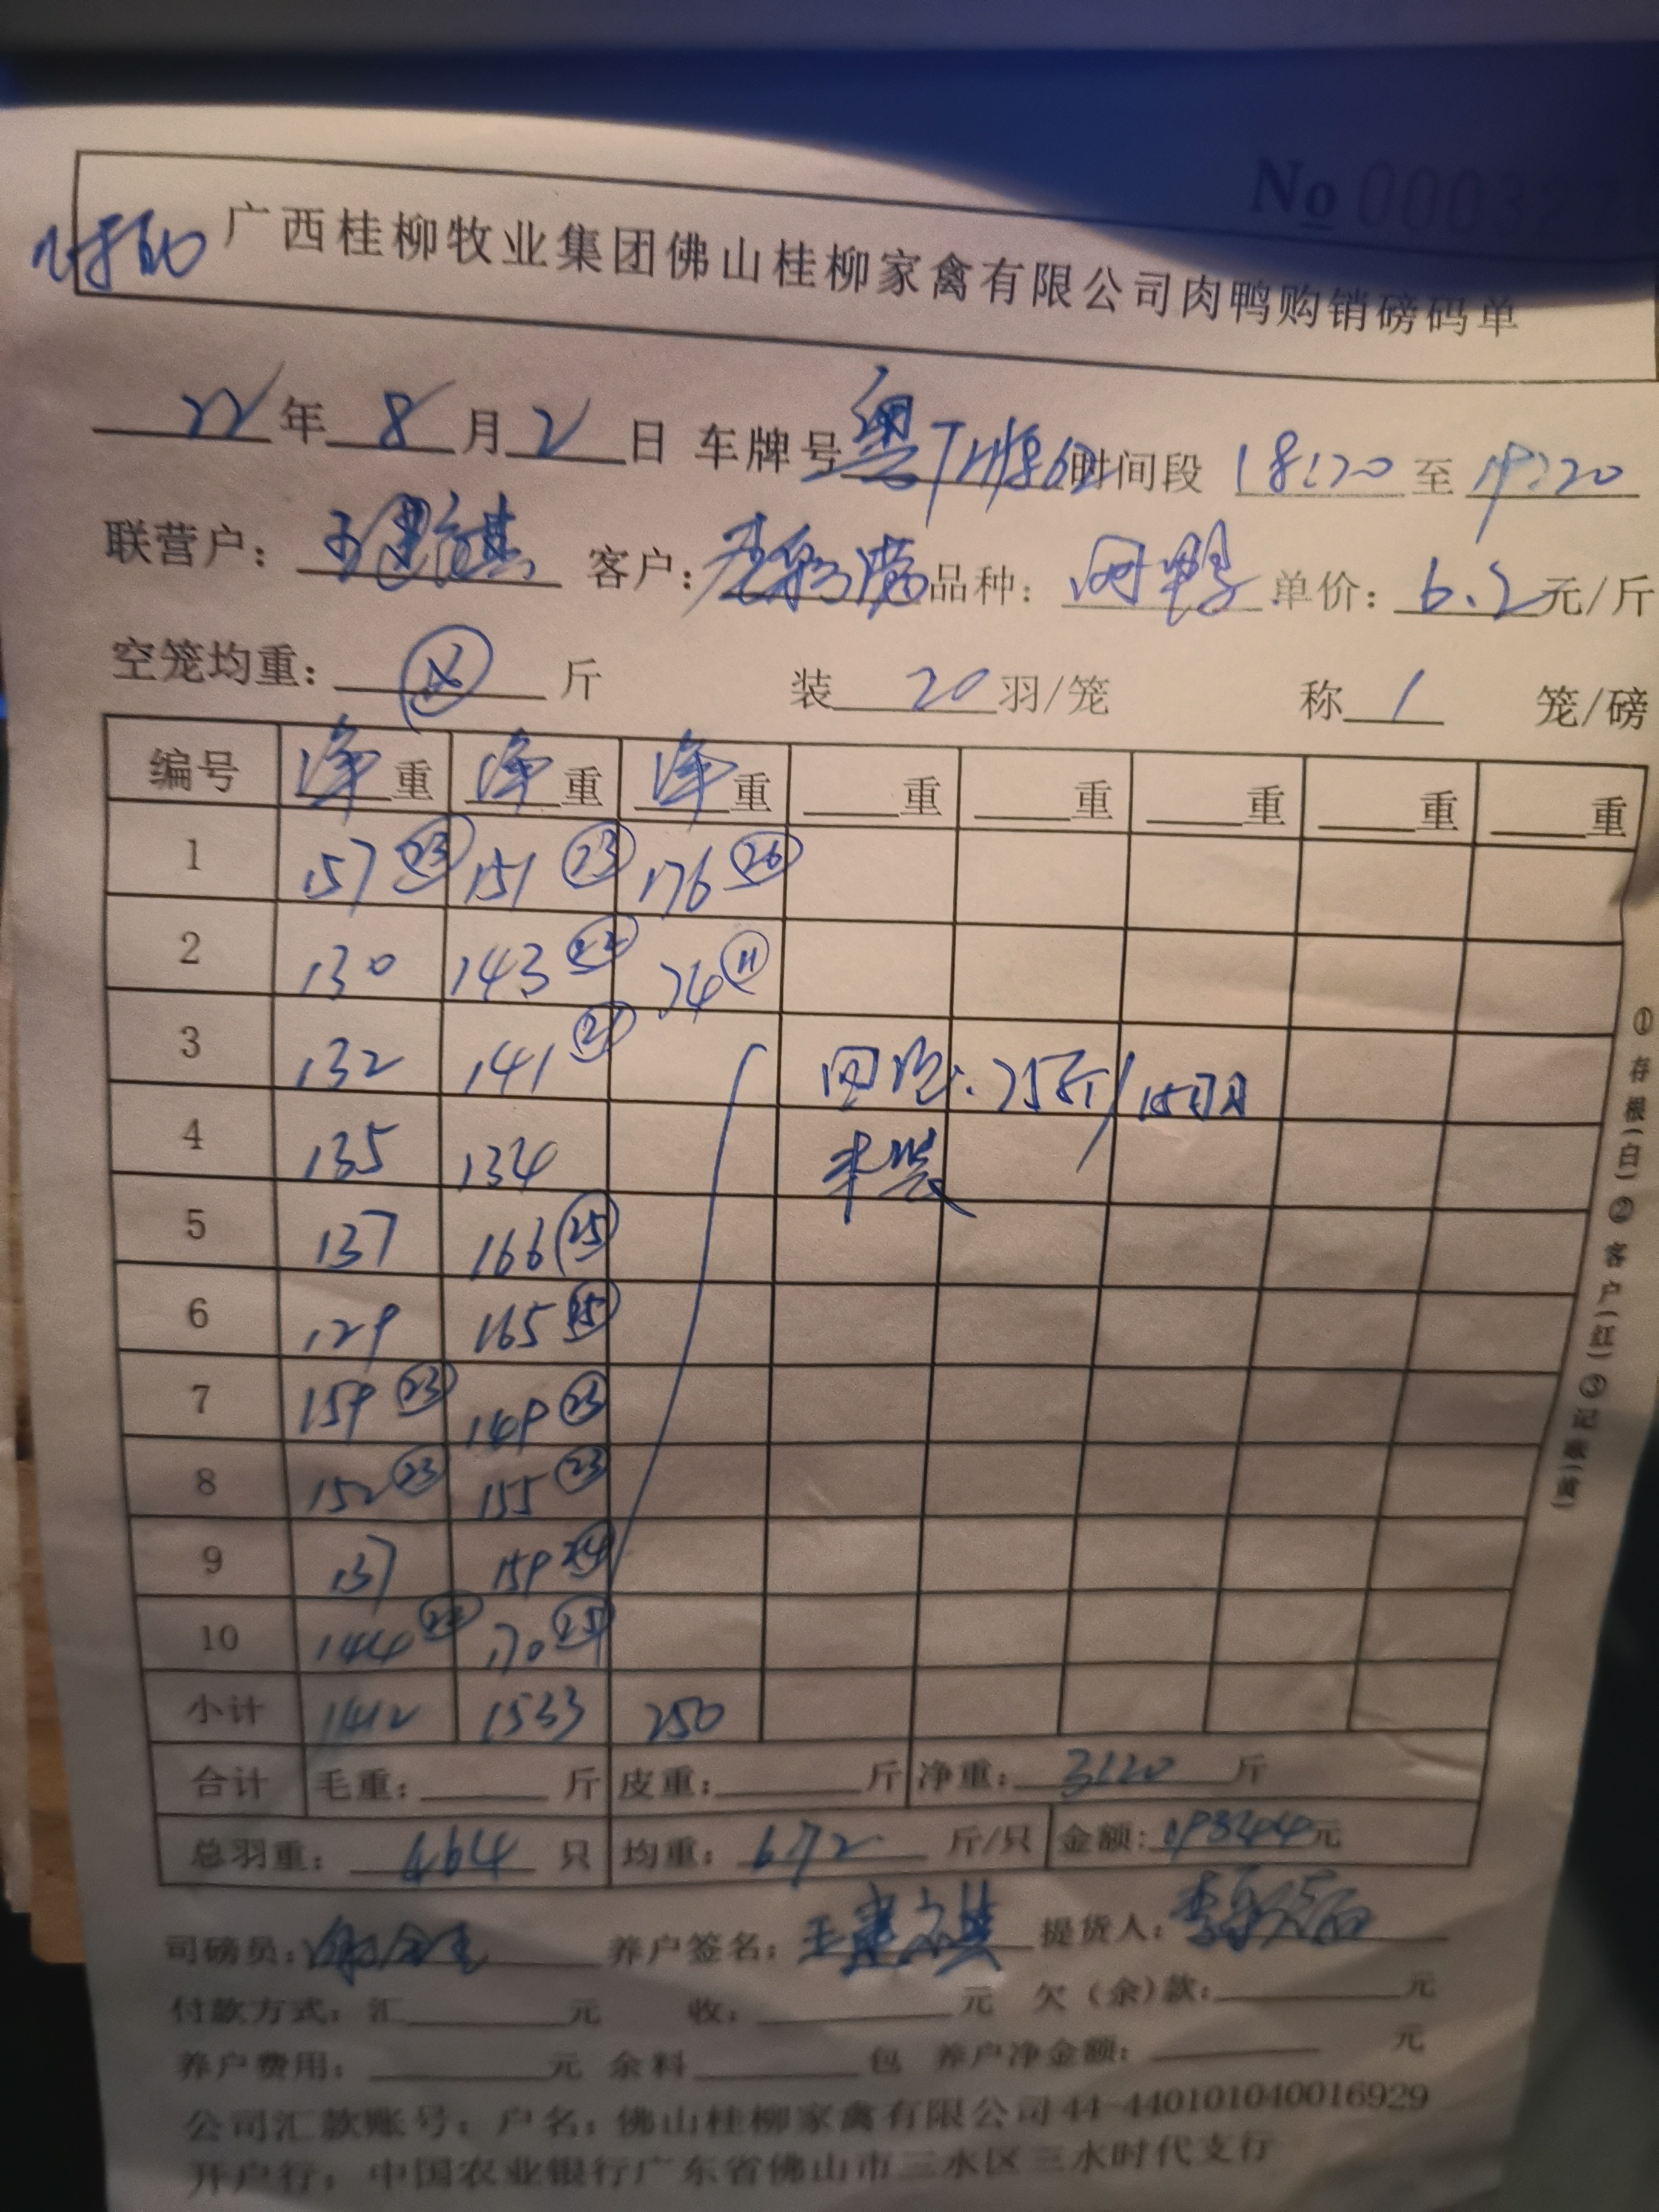 No 00032
广西桂柳牧业集团佛山桂柳家禽有限公司肉鸭购销磅码单
22 年 8 月 2 日 车牌号 粤 时间段 18:20 至 19:20
联营户： 客户： 品种： 肉鸭 单价： 6.2 元/斤
空笼均重： 斤 装 20 羽/笼 称 1 笼/磅
编号 净重 净重 净重 重 重 重 重 重
1 157 23 151 23 176 26
2 130 143 22 74 11
3 132 141 21
4 135 134
5 137 166 25
6 129 165 25
7 159 23 149 23
8 152 23 155 23
9 137 159 24
10 144 22 170 25
小计 1412 1533 250
合计 毛重： 斤 皮重： 斤 净重： 3120 斤
总羽重： 464 只 均重： 672 斤/只 金额: 19344 元
司磅员： 养户签名： 提货人：
付款方式：汇 元 收： 元 欠（余）款： 元
养户费用： 元 余料 包 养户净金额： 元
公司汇款账号：户名：佛山桂柳家禽有限公司44-440101040016929
开户行：中国农业银行广东省佛山市三水区三水时代支行
①存根（白）②客户（红）③记账（黄）